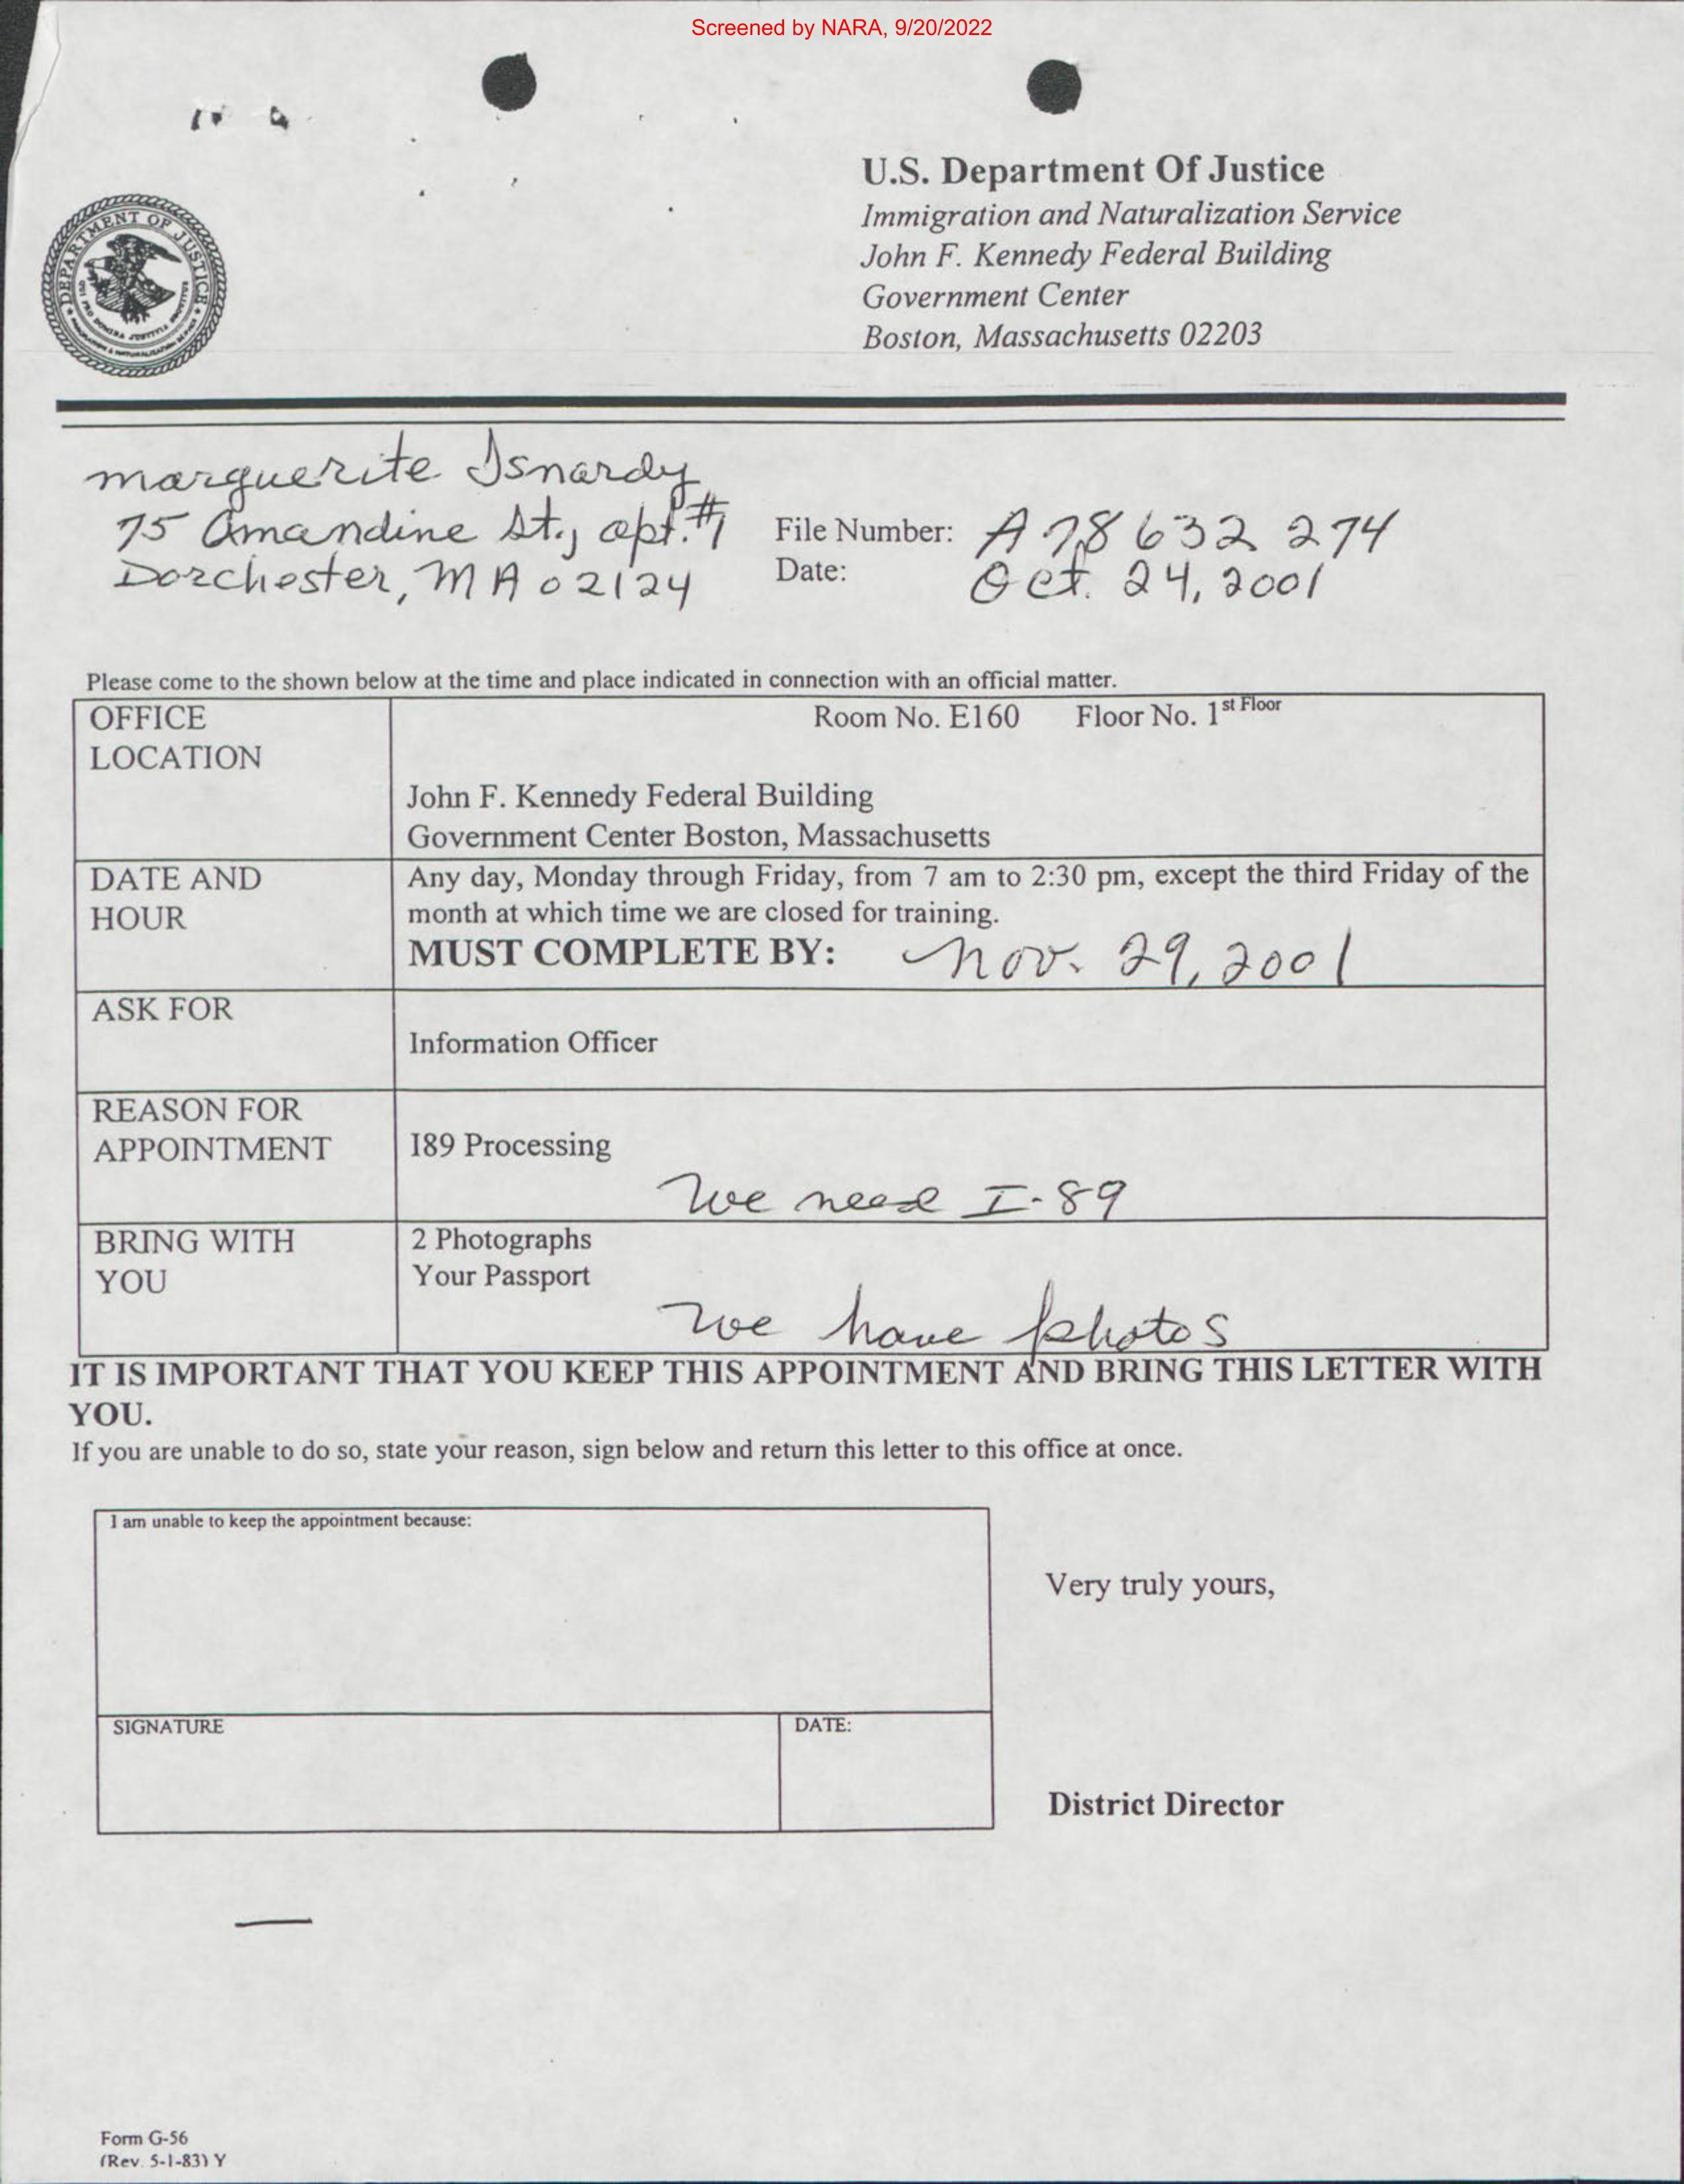 Screened by NARA, 9/20/2022
U.S. Department Of Justice
Immigration and Naturalization Service
John F. Kennedy Federal Building
Government Center
Boston, Massachusetts 02203
DEPARTMENT OF JUSTICE
marguerite Isnardy
75 Amandine St., apt. #1
Dorchester, MA 02124
File Number: A 78 632 274
Date: Oct. 24, 2001
Please come to the shown below at the time and place indicated in connection with an official matter.
OFFICE LOCATION
Room No. E160 Floor No. 1st Floor
John F. Kennedy Federal Building
Government Center Boston, Massachusetts
DATE AND HOUR
Any day, Monday through Friday, from 7 am to 2:30 pm, except the third Friday of the
month at which time we are closed for training.
MUST COMPLETE BY: Nov. 29, 2001
ASK FOR
Information Officer
REASON FOR APPOINTMENT
I89 Processing
We need I-89
BRING WITH YOU
2 Photographs
Your Passport
We have photos
IT IS IMPORTANT THAT YOU KEEP THIS APPOINTMENT AND BRING THIS LETTER WITH
YOU.
If you are unable to do so, state your reason, sign below and return this letter to this office at once.
I am unable to keep the appointment because:
Very truly yours,
SIGNATURE
DATE:
District Director
Form G-56
(Rev. 5-1-83) Y